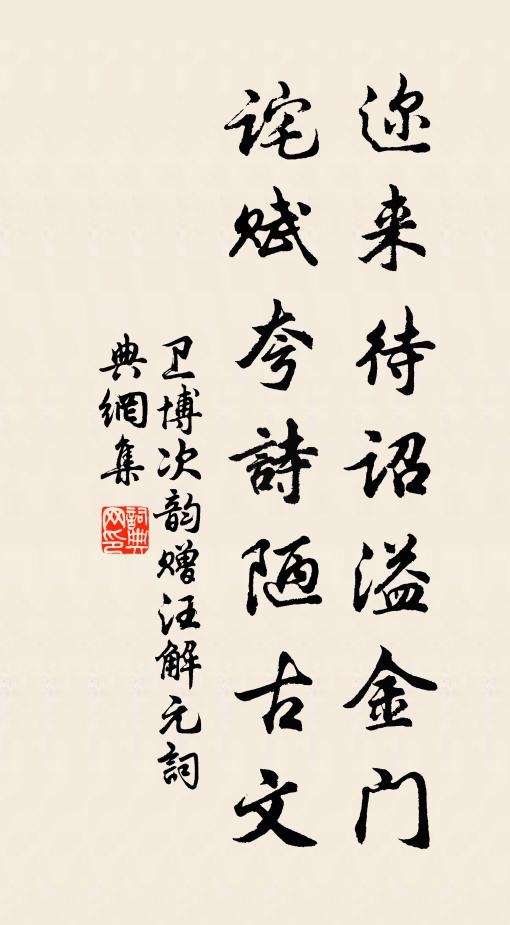 迩来待诏溢金门
诧赋夸詩陋古文
卫博次韵赠汪解元詞
典網集
詞典
网印